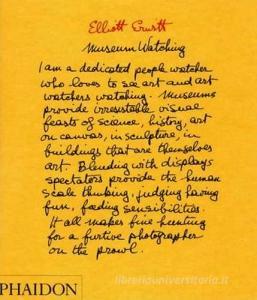 Elliott Erwitt
Museum Watching
I am a dedicated people watcher
who loves to see art and art
watchers watching. Museums
provide irresistable visual
feasts of science, history, art
on canvas, in sculpture, in
buildings that are themselves
art. Blending with displays
spectators provide the human
scale thinking, judging having
fun, feeding sensibilities.
It all makes fine hunting
for a furtive photographer
on the prowl.
PHAIDON
libreriauniversitaria.it